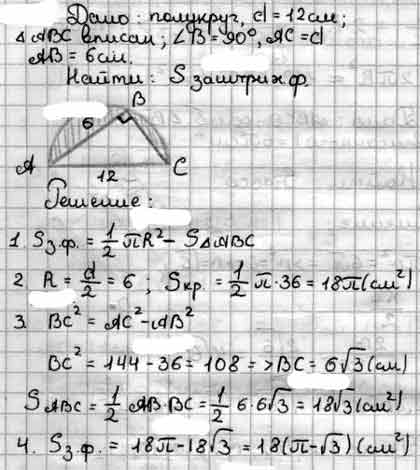 Дано: полукруг, d = 12 см;
△ABC вписан; ∠B = 90°, AC = d
AB = 6 см.
Найти: S заштрих ф.
B
6
A
C
12
Решение:
1. Sз.ф. = 1/2 πR² - S△ABC
2. R = d/2 = 6; Sкр. = 1/2 π·36 = 18π (см²)
3. BC² = AC² - AB²
BC² = 144 - 36 = 108 => BC = 6√3 (см)
SABC = 1/2 AB·BC = 1/2 6·6√3 = 18√3 (см²)
4. Sз.ф. = 18π - 18√3 = 18(π - √3) (см²)